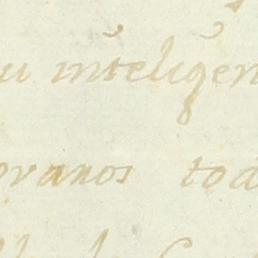 u inteligen
ovanos tod